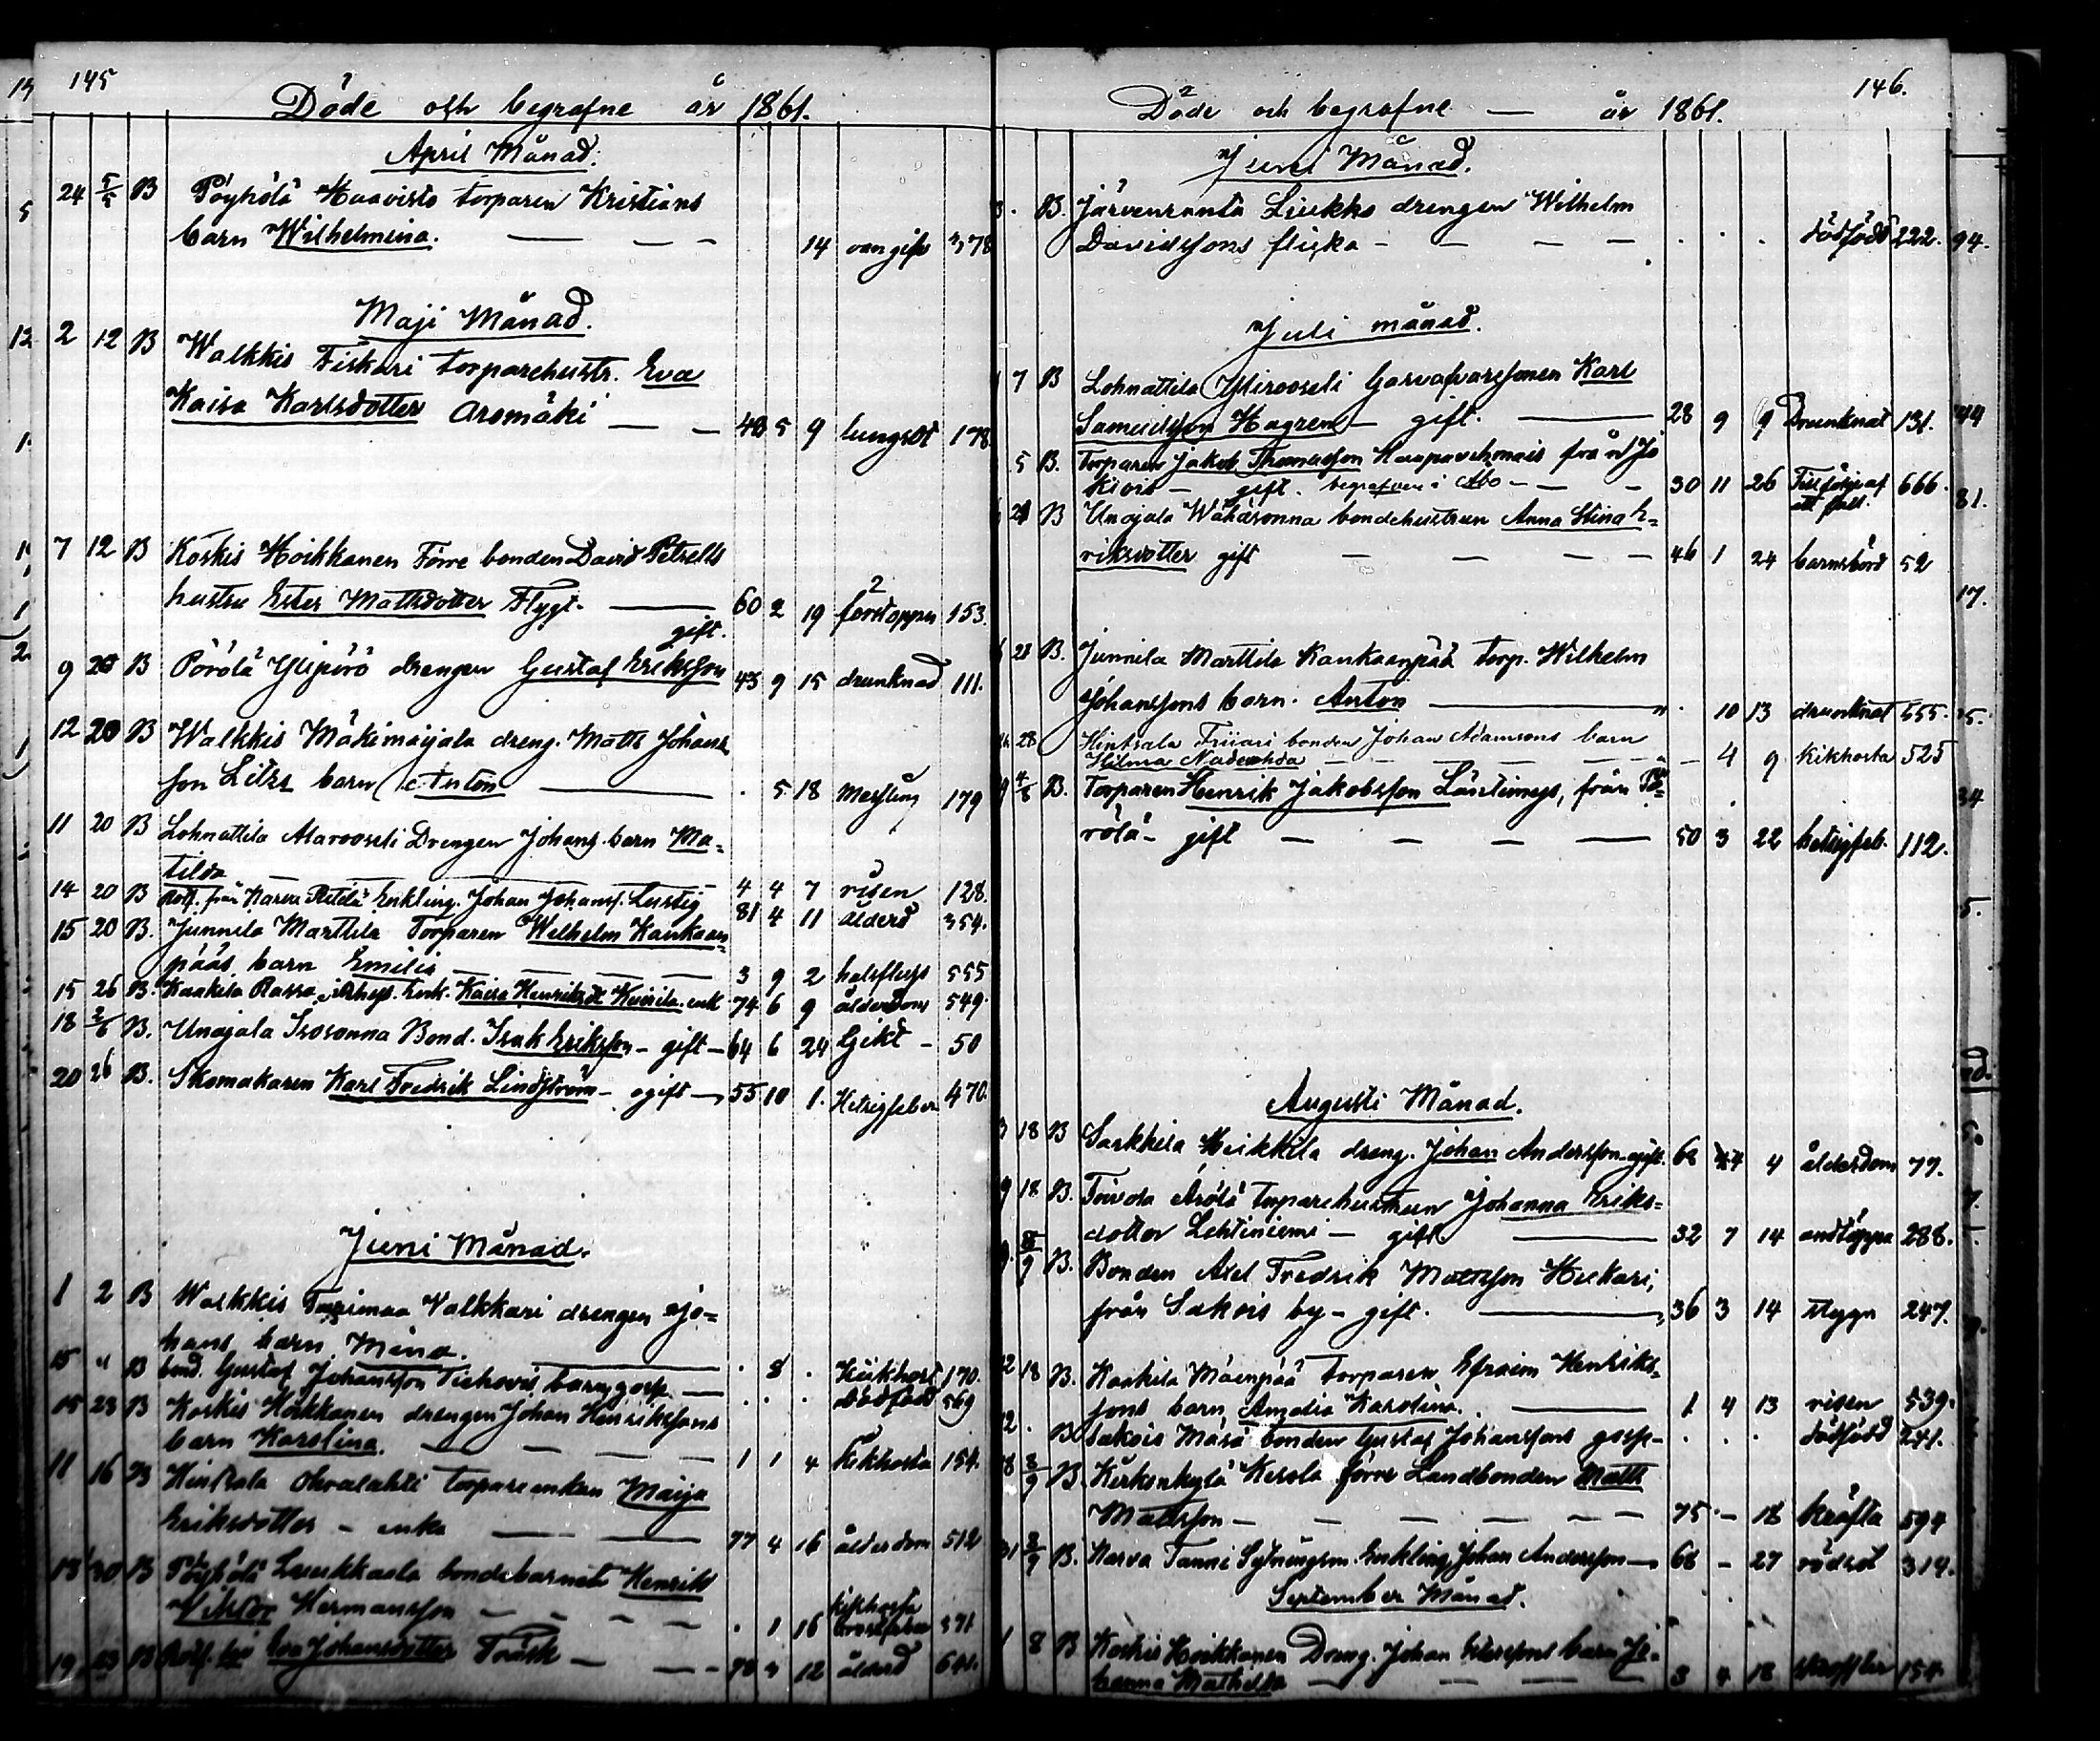 145
Döde och begrafne år 1861.
April Månad.
24 5/5 B Pöyhölä Haavisto torparen Kristians
barn Wilhelmina. — 14 378
Maji Månad.
2 12 B Walkkis Fiskari torparehustr. Eva
Kaisa Karlsdotter Aromäki — 43 5 9 lungsot 178
7 12 B Koskis Hoikkanen Förre bonden David Petrells
hustru Ester Mattsdotter Flygt. — gift. 60 2 19 förstoppn 153.
9 20 B Pörölä Ylipörö drengen Gustaf Eriksson 43 9 15 drunknad 111.
12 20 B Walkkis Mäkimaijala dreng. Matts Johans
son Litzs barn Anton — . 5 18 Messling 179
11 20 B Lohnattila Alarooseli Drengen Johans. barn Ma-
tilda — 4 4 7 risen 128.
14 20 B Rotf. från Karva Enkling. Johan Johanss. Lustig 81 4 11 ålderd 354.
15 20 B. Junnila Marttila Torparen Wilhelm Kankaan-
pääs barn Emilia — 3 9 2 halsfluss 555
15 26 B. Kaakila Rassa Enk. Kaisa Henriksdr enk 74 6 9 ålderdom 549.
18 2/6 B. Unajala Isosonna Bond. Isak Eriksson — gift — 64 6 24 Gikt — 50
20 26 B. Skomakaren Karl Fredrik Lindström — ogift — 55 10 1. Hetsigfeber 470.
Juni Månad.
1 2 B Walkkis Valkkari drengen Jo-
hans barn Mina. — . 8 . Kikhost 170.
15 " B bond. Gustaf Johansson barn, goss. — . . . dödfödd 569
15 23 B Koskis Hoikkanen drengen Johan Henrikssons
barn Karolina. — 1 1 4 Kikhosta 154.
11 16 B Hintsala Ohralahti torpareenkan Maija
Eriksdotter — enka — 77 4 16 ålderdom 512
18 30 B Pöyhölä Luukkaala bondebarnet Henrik
Viktor Hermansson — . 1 16 kikhosta 371
19 23 B Rotf. Eva Johansdotter Träsk — 12 ålderd
146.
Döde och begrafne — år 1861.
Juni Månad.
3. B. Järvenranta Liukko drengen Wilhelm
Davidssons flicka — . . . dödfödd 222.
Juli månad.
7 B Lohnattila Ylirooseli Garfvaresonen Karl
Samuelsson Hagren — gift. — 28 9 9 Drunknat 131.
5 B. Torparen Jakob Thomasson från Jo
kiois — gift. begrafven i Åbo — 30 11 26 Till följe af ett fall. 666.
21 B Unajala Wähäsonna bondehustrun Anna Stina H-
riksdotter gift — 46 1 24 barnsbörd 52
28 B. Junnila Marttila Kankaanpää torp. Wilhelm
Johanssons barn. Anton — . 10 13 drunknat 555.
28 Hintsala Friiari bonden Johan Adamsons barn
Hilma Nadeschda — 4 9 Kikhosta 525
4/8 B. Torparen Henrik Jakobsson från Pö-
rölä — gift — 50 3 22 hetsigfeb. 112.
Augusti Månad.
3 18 B Sarkkila Heikkilä dreng. Johan Andersson gift. 68 4 ålderdom 77.
9 18 B. Toivola Arölä torparehustrun Johanna Eriks-
dotter Lehtiniemi — gift — 32 7 14 andtäppa 288.
8/9 B. Bonden Axel Fredrik Mattsson Heikari,
från Sakois by — gift. — 36 3 14 stygn 247.
12 18 B. Kaakila Mäenpää torparen Efraim Henriks-
sons barn Amalia Karolina. — 1 4 13 risen 539.
12. B Sakois Mäsä bonden Gustaf Johanssons goss — . . . dödfödd 241.
28 8/9 B. Kirkonkylä Kesola förre Landbonden Matts
Mattsson — 75 — 18 kräfta 594
31 8/9 B. Karva Tanni Sytningsm. Enkling Johan Andersson — 68 — 27 rödsot 314.
September Månad.
1 8 B Koskis Hoikkanen Dreng. Johan barn Jo-
hanna Mathilda — 3 4 18 154.